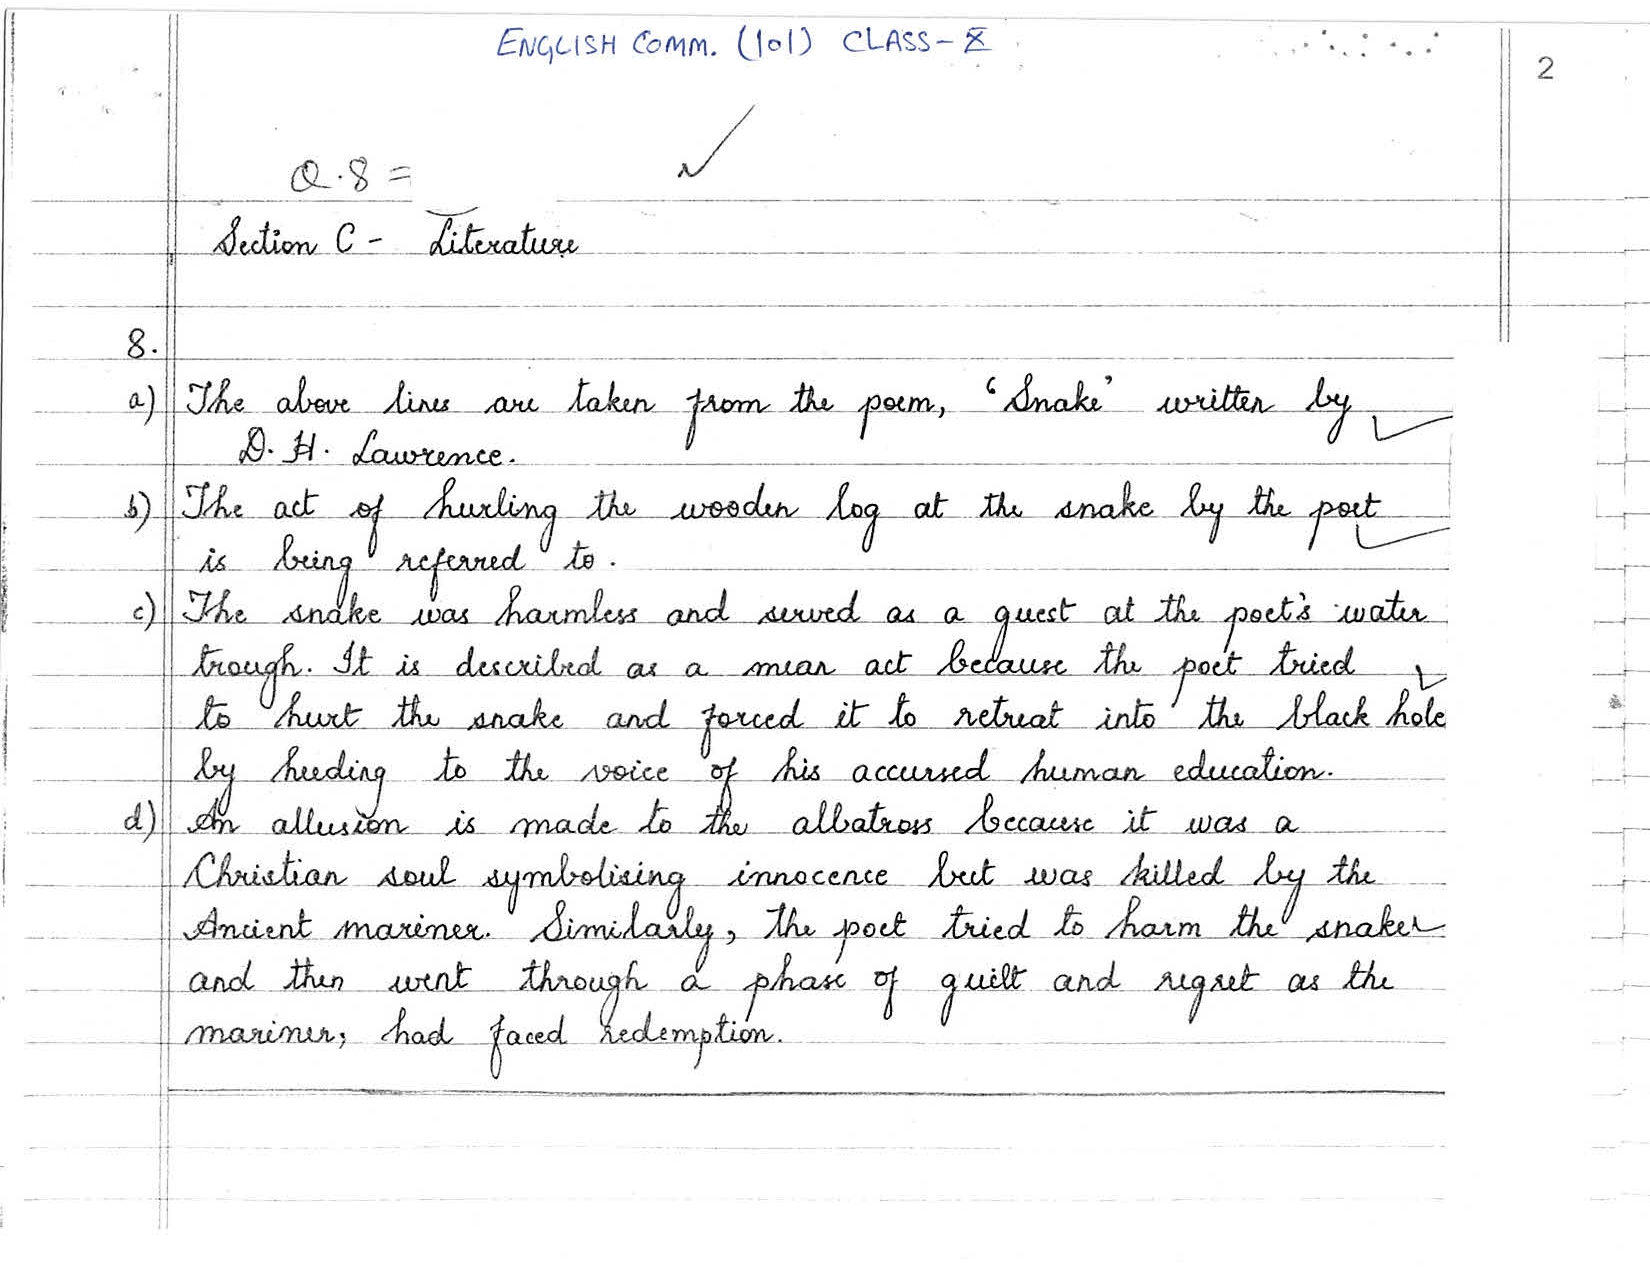 ENGLISH COMM. (101) CLASS-X
2
Q.8 =
Section C - Literature
8.
a) The above lines are taken from the poem, 'Snake' written by
D. H. Lawrence.
b) The act of hurling the wooden log at the snake by the poet
is being referred to.
c) The snake was harmless and served as a guest at the poet's water
trough. It is described as a mean act because the poet tried
to hurt the snake and forced it to retreat into the black hole
by heeding to the voice of his accursed human education.
d) An allusion is made to the albatross because it was a
Christian soul symbolising innocence but was killed by the
Ancient mariner. Similarly, the poet tried to harm the snake
and then went through a phase of guilt and regret as the
mariner, had faced redemption.